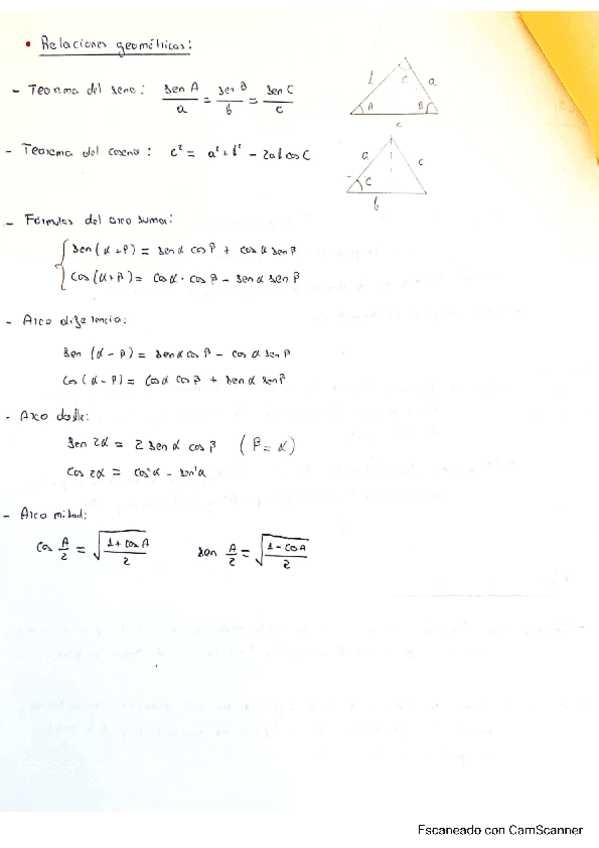 • Relaciones geométricas:
- Teorema del seno: sen A / a = sen B / b = sen C / c
b C a
A B
c
- Teorema del coseno: c² = a² + b² - 2ab cos C
a c
C
b
- Fórmulas del arco suma:
sen (α + β) = sen α cos β + cos α sen β
cos (α + β) = cos α · cos β - sen α sen β
- Arco diferencia:
sen (α - β) = sen α cos β - cos α sen β
cos (α - β) = cos α cos β + sen α sen β
- Arco doble:
sen 2α = 2 sen α cos β (β = α)
cos 2α = cos²α - sen²α
- Arco mitad:
cos A/2 = √((1 + cos A)/2) sen A/2 = √((1 - cos A)/2)
Escaneado con CamScanner